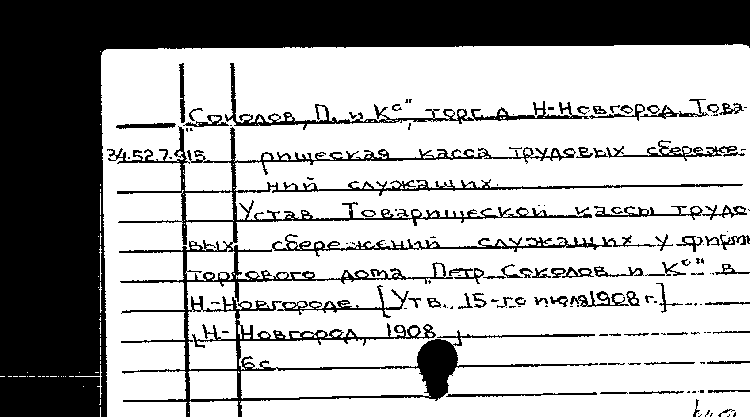 „Соколов, П. и К°", торг. д. Н-Новгород. Това-
34.52.7.915 рищеская касса трудовых сбереже-
ний служащих.
Устав Товарищеской кассы трудо-
вых сбережений служащих у фирмы
торгового дома „Петр Соколов и К°" в
Н.-Новгороде. [Утв. 15-го июля 1908 г.]
[Н-Новгород, 1908].
6 с.